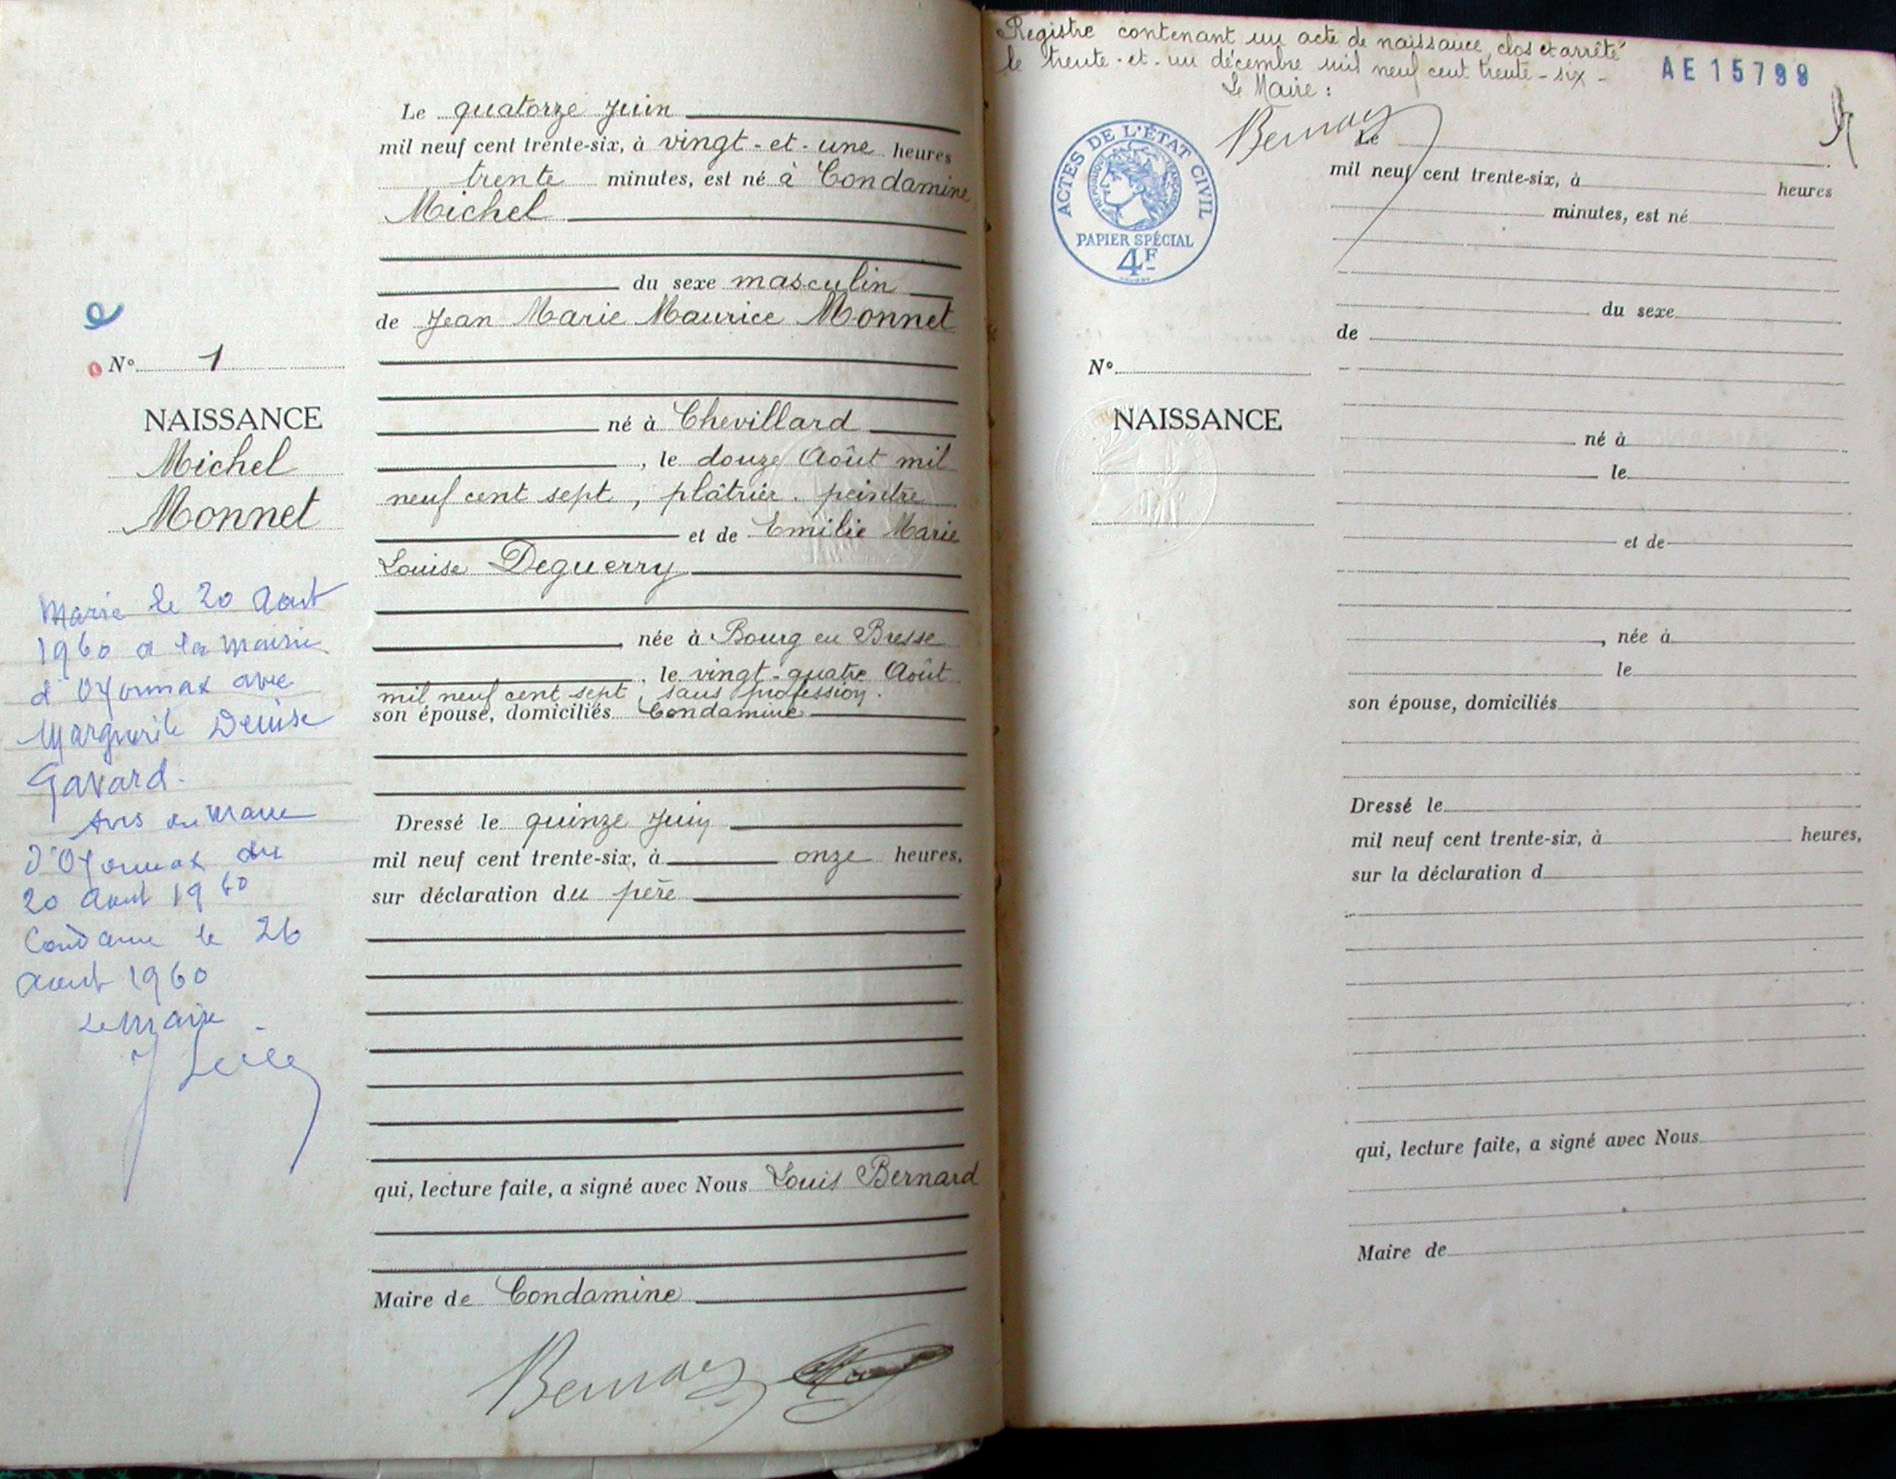 Le quatorze Juin
mil neuf cent trente-six, à vingt-et-une heures
trente minutes, est né à Condamine
Michel
du sexe masculin
de Jean Marie Maurice Monnet
N° 1
NAISSANCE
Michel
Monnet
né à Chevillard
, le douze Août mil
neuf cent sept, plâtrier-peintre
et de Emilie Marie
Louise Deguerry
, née à Bourg en Bresse
, le vingt-quatre Août
mil neuf cent sept, sans profession.
son épouse, domiciliés Condamine
Dressé le quinze Juin
mil neuf cent trente-six, à onze heures,
sur déclaration du père
qui, lecture faite, a signé avec Nous Louis Bernard
Maire de Condamine
Marié le 20 Aout
1960 a la mairie
d'Oyonnax avec
Marguerite Denise
Gavard.
Avis du Maire
d'Oyonnax du
20 Aout 1960
Condamine le 26
Aout 1960
Le Maire
Registre contenant un acte de naissance, clos et arrêté
le trente-et-un décembre mil neuf cent trente-six-
Le Maire :
AE 15799
ACTES DE L'ÉTAT CIVIL
PAPIER SPÉCIAL
4F
Le
mil neuf cent trente-six, à heures
minutes, est né
du sexe
de
N°
NAISSANCE
né à
le
et de
, née à
le
son épouse, domiciliés
Dressé le
mil neuf cent trente-six, à heures,
sur la déclaration d
qui, lecture faite, a signé avec Nous
Maire de